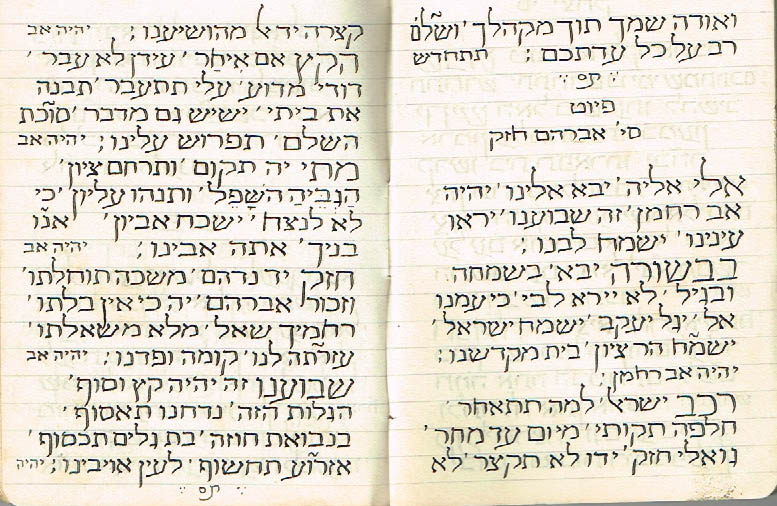 ואודה שמך תוך מקהלך ׳ ושלם
רב על כל עדתכם ; תתחדש
תם
פיוט
סי׳ אברהם חזק
אלי אליה ׳ יבא אלינו ׳ יהיה
אב רחמן ׳ זה שבוענו ׳ יראו
עינינו ׳ ישמח לבנו ;
בבשורה יבא ׳ בשמחה
ובגיל ׳ לא יירא לבי ׳ כי עמנו
אל ׳ יגל יעקב ׳ ישמח ישראל ׳
ישמח הר ציון ׳ בית מקדשנו ;
יהיה אב רחמן ;
רכב ישראל ׳ למה תתאחר ׳
חלפה תקותי ׳ מיום עד מחר ׳
גואלי חזק ׳ ידו לא תקצר ׳ לא
קצרה יד אל מהושיענו ; יהיה אב
הקץ אם איחר ׳ עידן לא עבר ׳
דודי מדוע ׳ עלי תתעבר ׳ תבנה
את ביתי ׳ ישיש גם מדבר ׳ סוכת
השלם ׳ תפרוש עלינו ; יהיה אב
מתי יה תקום ׳ ותרחם ציון ׳
הגביה השפל ׳ ותנהו עליון ׳ כי
לא לנצח ׳ ישכח אביון ׳ אנו
בניך ׳ אתה אבינו ; יהיה אב
חזק יד נדהם ׳ משכה תוחלתו ׳
וזכור אברהם ׳ יה כי אין בלתו ׳
רחמיך שאל ׳ מלא משאלתו ׳
עזרתה לנו ׳ קומה ופדנו ; יהיה אב
שבוענו זה יהיה קץ וסוף ׳
הגלות הזה ׳ נדחנו תאסוף ׳
בנבואת חוזה ׳ בת גלים תכסוף ׳
אזרוע תחשוף ׳ לעין אויבינו ; יהיה
תם